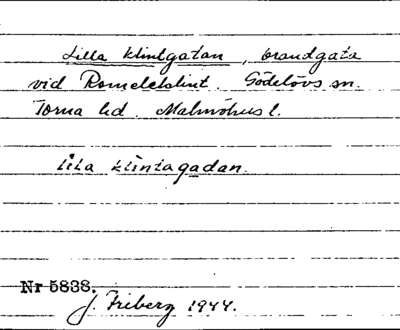 Lilla klintgatan, brandgata
vid Romeleklint. Gödelövs sn.
Torna hd. Malmöhus l.
lila klintagadan.
Nr 5838.
J. Friberg 1944.